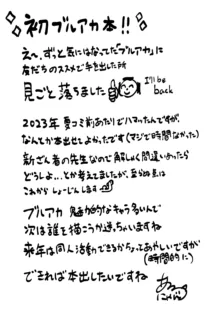 初ブルアカ本!!
え〜、ずっと気にはなってた「ブルアカ」に
友だちのススメで手を出した所
見ごと落ちました
I'll be
back
2023年夏コミ前あたりでハマったんですが、
なんとか本出せてよかったです(マジで時間なかった)
新ざん者の先生なので解しゃく間違いあったら
どうしよ...とか考えてましたが、至らぬ点は
これからしょーじんします
ブルアカ 魅力的なキャラ多いんで
次は誰を描こうか迷っちゃいますね
来年は同人活動できるかちょっとあやしいですが
(時間的に)
できれば本出したいですね